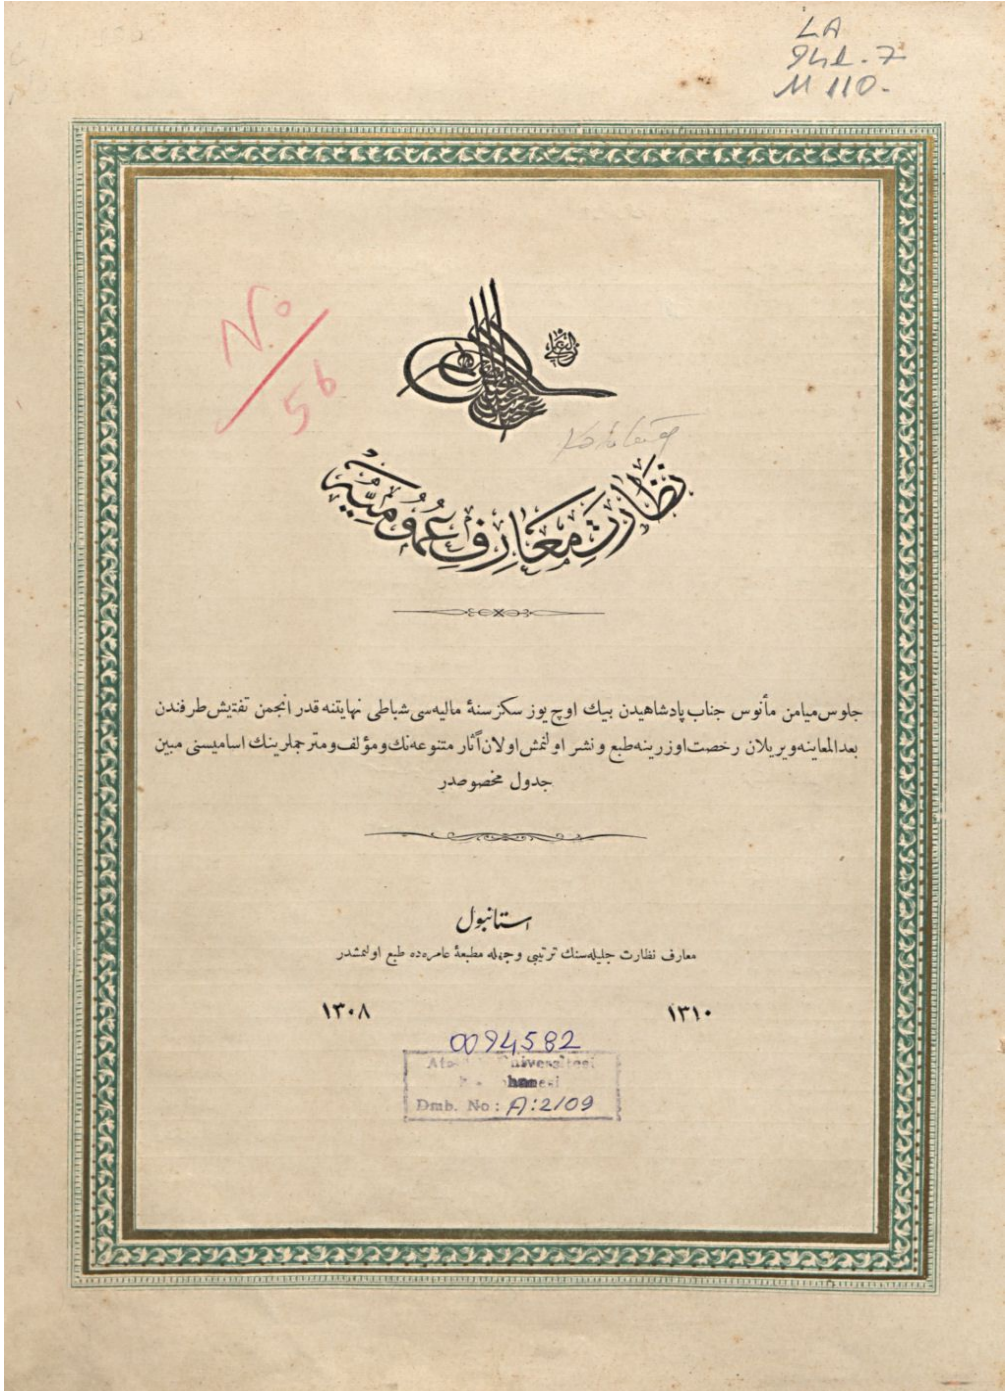 LA
942.7
M 110-
No
56
نظارت معارف عمومیه
جلوس میامن مأنوس جناب پادشاهیدن بیك اوچ یوز سکز سنهٔ مالیه‌سی شباطی نهایتنه قدر انجمن تفتیش طرفندن
بعدالمعاینه ویریلان رخصت اوزرینه طبع و نشر اولنمش اولان آثار متنوعه‌نك و مؤلف و مترجملرینك اسامیسنی مبین
جدول مخصوصدر
استانبول
معارف نظارت جلیله‌سنك ترتیبی وجهله مطبعهٔ عامره‌ده طبع اولنمشدر
١٣١٠ ١٣٠٨
0094582
Üniversitesi
Dmb. No: A:2109